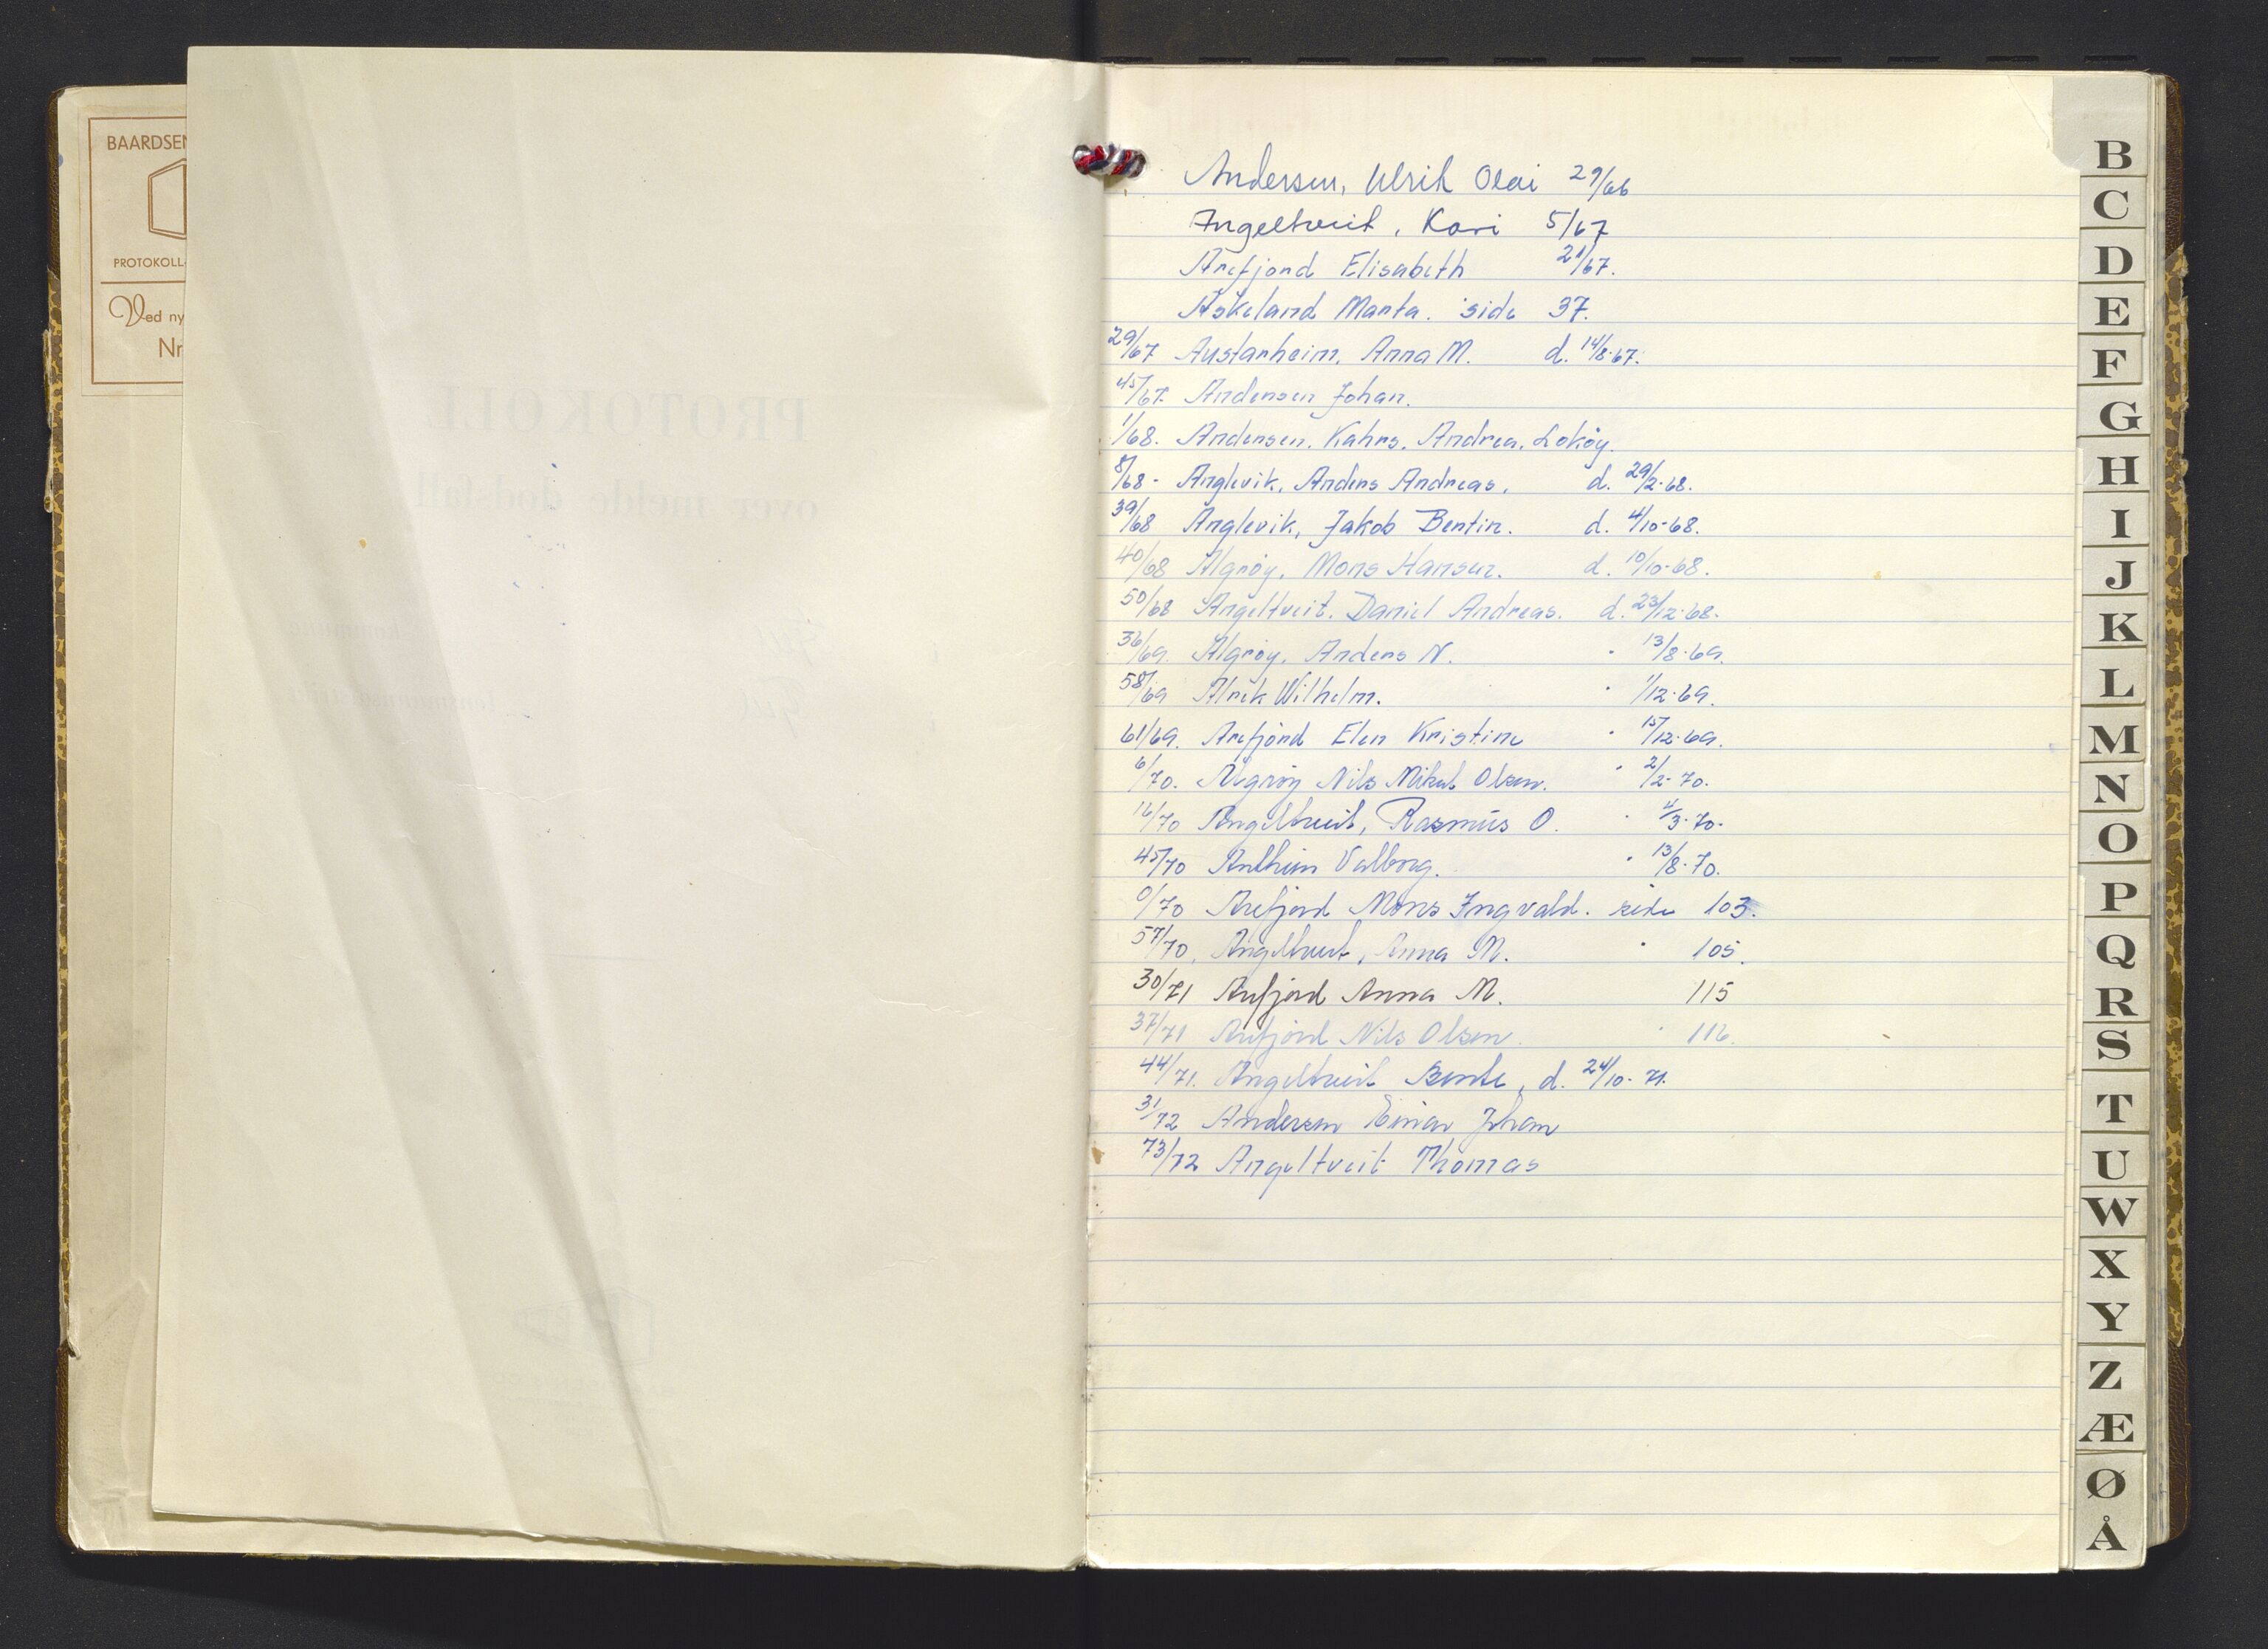 BAARDSEN
PROTOKOLL-
Ved ny
Nr
PROTOKOLL
over melde dødsfall
kommune
Andersen, Ulrik Olai 29/66
Angeltveit, Kari 5/67
Arefjord Elisabeth 21/67.
Askeland Marta. side 37.
29/67 Austarheim, Anna M. d. 14/8-67.
45/67. Andersen Johan.
1/68. Andersen. Kahrs. Andrea. Lokøy.
8/68 - Anglevik, Anders Andreas. d. 29/2-68.
39/68 Anglevik, Jakob Bentin. d. 4/10-68.
40/68 Algrøy, Mons Hansen. d. 10/10-68.
50/68 Angeltveit. Daniel Andreas. d. 23/12-68.
36/69. Algrøy. Anders N. " 13/8-69.
58/69 Alrek Wilhelm. " 1/12-69.
61/69. Arefjord Elen Kristine " 15/12-69.
6/70. Algrøy Nils Mikal Olsen. " 2/2-70.
16/70 Angeltveit, Rasmus O. " 4/3-70.
45/70 Valborg. " 13/8-70.
0/70 Arefjord Mons Ingvald. side 103.
57/70. Angeltveit, Anna M. " 105.
30/71 Arefjord Anna M. 115
37/71 Arefjord Nils Olsen. " 116.
44/71. Angeltveit Bente, d. 24/10-71.
31/72 Andersen Einar Johan
73/72 Angeltveit Thomas
B
C
D
E
F
G
H
I
J
K
L
M
N
O
P
Q
R
S
T
U
W
X
Y
Z
Æ
Ø
Å